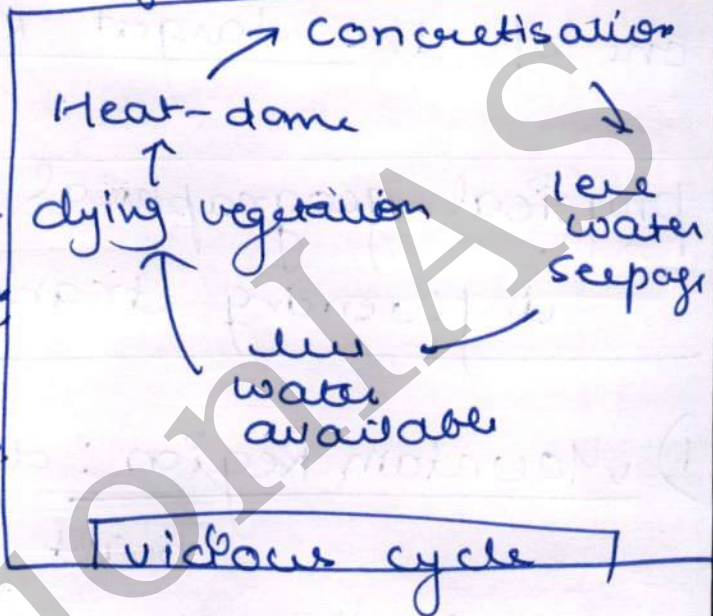 concretisation
Heat-dome
dying vegetation
less
water
seepage
less
water
available
vicious cycle
onIAS